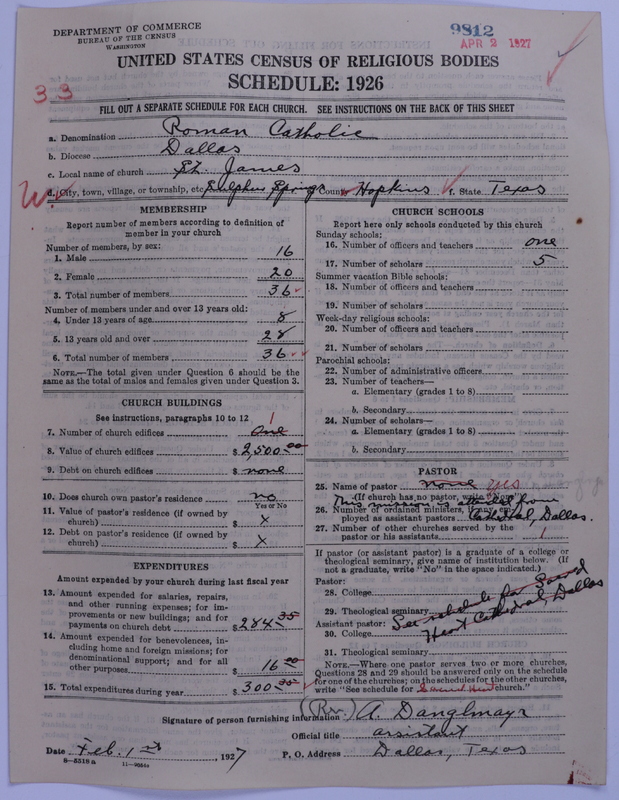 DEPARTMENT OF COMMERCE
BUREAU OF THE CENSUS
WASHINGTON
9812
APR 2 1927
UNITED STATES CENSUS OF RELIGIOUS BODIES
SCHEDULE: 1926
33
FILL OUT A SEPARATE SCHEDULE FOR EACH CHURCH. SEE INSTRUCTIONS ON THE BACK OF THIS SHEET
a. Denomination Roman Catholic
b. Diocese Dallas
c. Local name of church St. James
d. City, town, village, or township, etc. Sulphur Springs County Hopkins f. State Texas
MEMBERSHIP
Report number of members according to definition of
member in your church
Number of members, by sex:
1. Male 16
2. Female 20
3. Total number of members 36
Number of members under and over 13 years old:
4. Under 13 years of age 8
5. 13 years old and over 28
6. Total number of members 36
NOTE.—The total given under Question 6 should be the
same as the total of males and females given under Question 3.
CHURCH BUILDINGS
See instructions, paragraphs 10 to 12
7. Number of church edifices One 1
8. Value of church edifices $ 2,500.00
9. Debt on church edifices $ none
10. Does church own pastor's residence no
Yes or No
11. Value of pastor's residence (if owned by
church) $ X
12. Debt on pastor's residence (if owned by
church) $ X
EXPENDITURES
Amount expended by your church during last fiscal year
13. Amount expended for salaries, repairs,
and other running expenses; for im-
provements or new buildings; and for
payments on church debt $ 284.35
14. Amount expended for benevolences, in-
cluding home and foreign missions; for
denominational support; and for all
other purposes $ 16.00
15. Total expenditures during year $ 300.35
CHURCH SCHOOLS
Report here only schools conducted by this church
Sunday schools:
16. Number of officers and teachers one
17. Number of scholars 5
Summer vacation Bible schools:
18. Number of officers and teachers
19. Number of scholars
Week-day religious schools:
20. Number of officers and teachers
21. Number of scholars
Parochial schools:
22. Number of administrative officers
23. Number of teachers—
a. Elementary (grades 1 to 8)
b. Secondary
24. Number of scholars—
a. Elementary (grades 1 to 8)
b. Secondary
PASTOR
25. Name of pastor none yes
(If church has no pastor, write "None")
This mission is attended from
26. Number of ordained ministers, if any, em-
ployed as assistant pastors Cathedral, Dallas.
27. Number of other churches served by the
pastor or his assistants 1
If pastor (or assistant pastor) is a graduate of a college or
theological seminary, give name of institution below. (If
not a graduate, write "No" in the space indicated.)
Pastor:
28. College
29. Theological seminary
See schedule for Sacred
Heart Cathedral, Dallas
Assistant pastor:
30. College
31. Theological seminary
NOTE.—Where one pastor serves two or more churches,
Questions 28 and 29 should be answered only on the schedule
for one of the churches; on the schedules for the other churches,
write "See schedule for Sacred Heart church."
Signature of person furnishing information (Rev.) A. Danglmayr
Official title assistant
Date Feb. 1st, 1927 P. O. Address Dallas, Texas
8—5518a